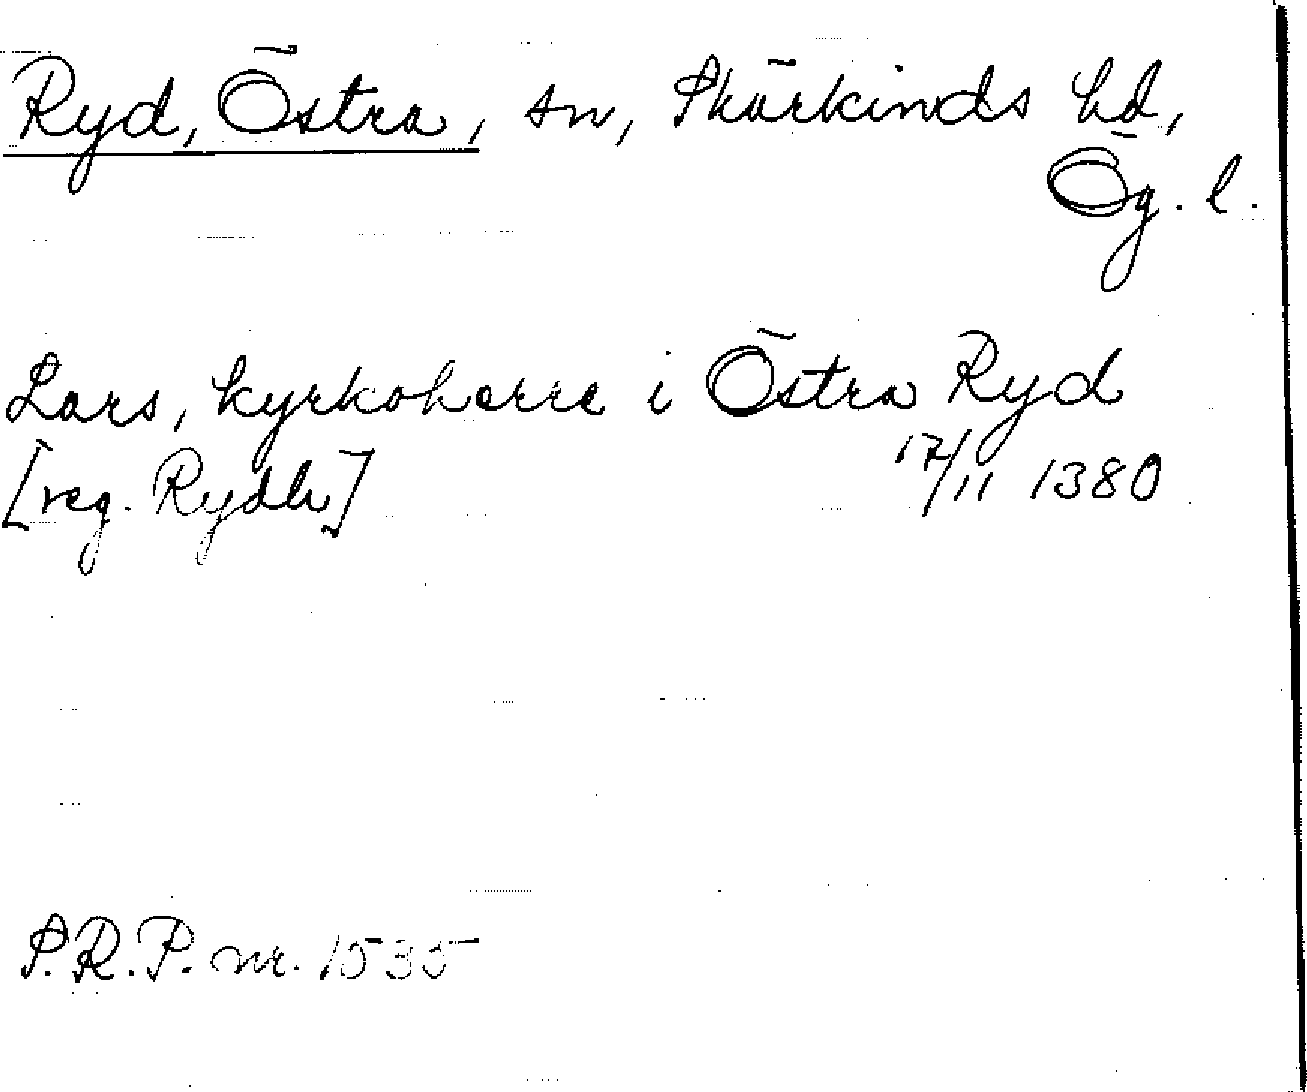 Ryd, Östra, sn, Skärkinds hd,
Ög. l.
Lars, kyrkoherre i Östra Ryd
[reg. Rydh] 17/11 1380
S.R.P. nr. 1535